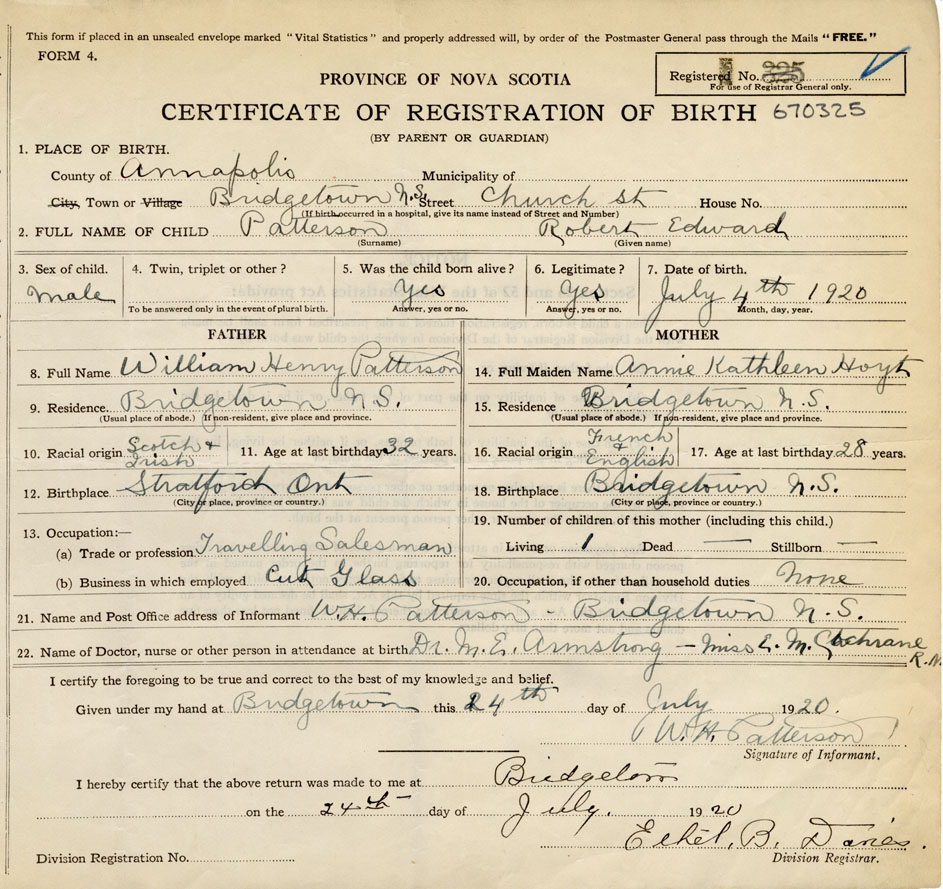 This form if placed in an unsealed envelope marked "Vital Statistics" and properly addressed will, by order of the Postmaster General pass through the Mails "FREE."
FORM 4.
Registered No. 325
For use of Registrar General only.
PROVINCE OF NOVA SCOTIA
CERTIFICATE OF REGISTRATION OF BIRTH 670325
(BY PARENT OR GUARDIAN)
1. PLACE OF BIRTH.
County of Annapolis Municipality of
City, Town or Village Bridgetown N.S. Street Church St House No.
(If birth occurred in a hospital, give its name instead of Street and Number)
2. FULL NAME OF CHILD Patterson Robert Edward
(Surname) (Given name)
3. Sex of child. 4. Twin, triplet or other? 5. Was the child born alive? 6. Legitimate? 7. Date of birth.
Male Yes Yes July 4th 1920
To be answered only in the event of plural birth. Answer, yes or no. Answer, yes or no. Month, day, year.
FATHER MOTHER
8. Full Name William Henry Patterson 14. Full Maiden Name Annie Kathleen Hoyt
9. Residence Bridgetown N.S. 15. Residence Bridgetown N.S.
(Usual place of abode.) If non-resident, give place and province. (Usual place of abode.) If non-resident, give place and province.
10. Racial origin Scotch & Irish 11. Age at last birthday 32 years. 16. Racial origin French & English 17. Age at last birthday 28 years.
12. Birthplace Stratford Ont 18. Birthplace Bridgetown N.S.
(City or place, province or country.) (City or place, province or country.)
13. Occupation:— 19. Number of children of this mother (including this child.)
(a) Trade or profession Travelling Salesman Living 1 Dead — Stillborn —
(b) Business in which employed Cut Glass 20. Occupation, if other than household duties None
21. Name and Post Office address of Informant W.H. Patterson - Bridgetown N.S.
22. Name of Doctor, nurse or other person in attendance at birth Dr. M.E. Armstrong — Miss E. M. Cochrane R.N.
I certify the foregoing to be true and correct to the best of my knowledge and belief.
Given under my hand at Bridgetown this 24th day of July 1920.
W.H. Patterson
Signature of Informant.
I hereby certify that the above return was made to me at Bridgetown
on the 24th day of July. 1920
Ethel. B. Davies.
Division Registration No. Division Registrar.